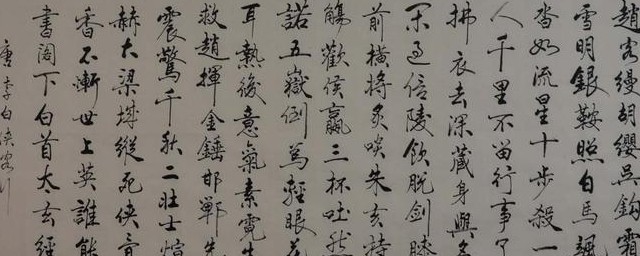 趙客縵胡纓吳鈎霜
雪明銀鞍照白馬颯
沓如流星十步殺一
人千里不留行事了
拂衣去深藏身與名
閑過信陵飲脫劍膝
前橫將炙啖朱亥持
觴勸侯嬴三杯吐然
諾五嶽倒為輕眼花
耳熱後意氣素霓生
救趙揮金錘邯鄲先
震驚千秋二壯士烜
赫大梁城縱死俠骨
香不慚世上英誰能
書閣下白首太玄經
唐李白俠客行